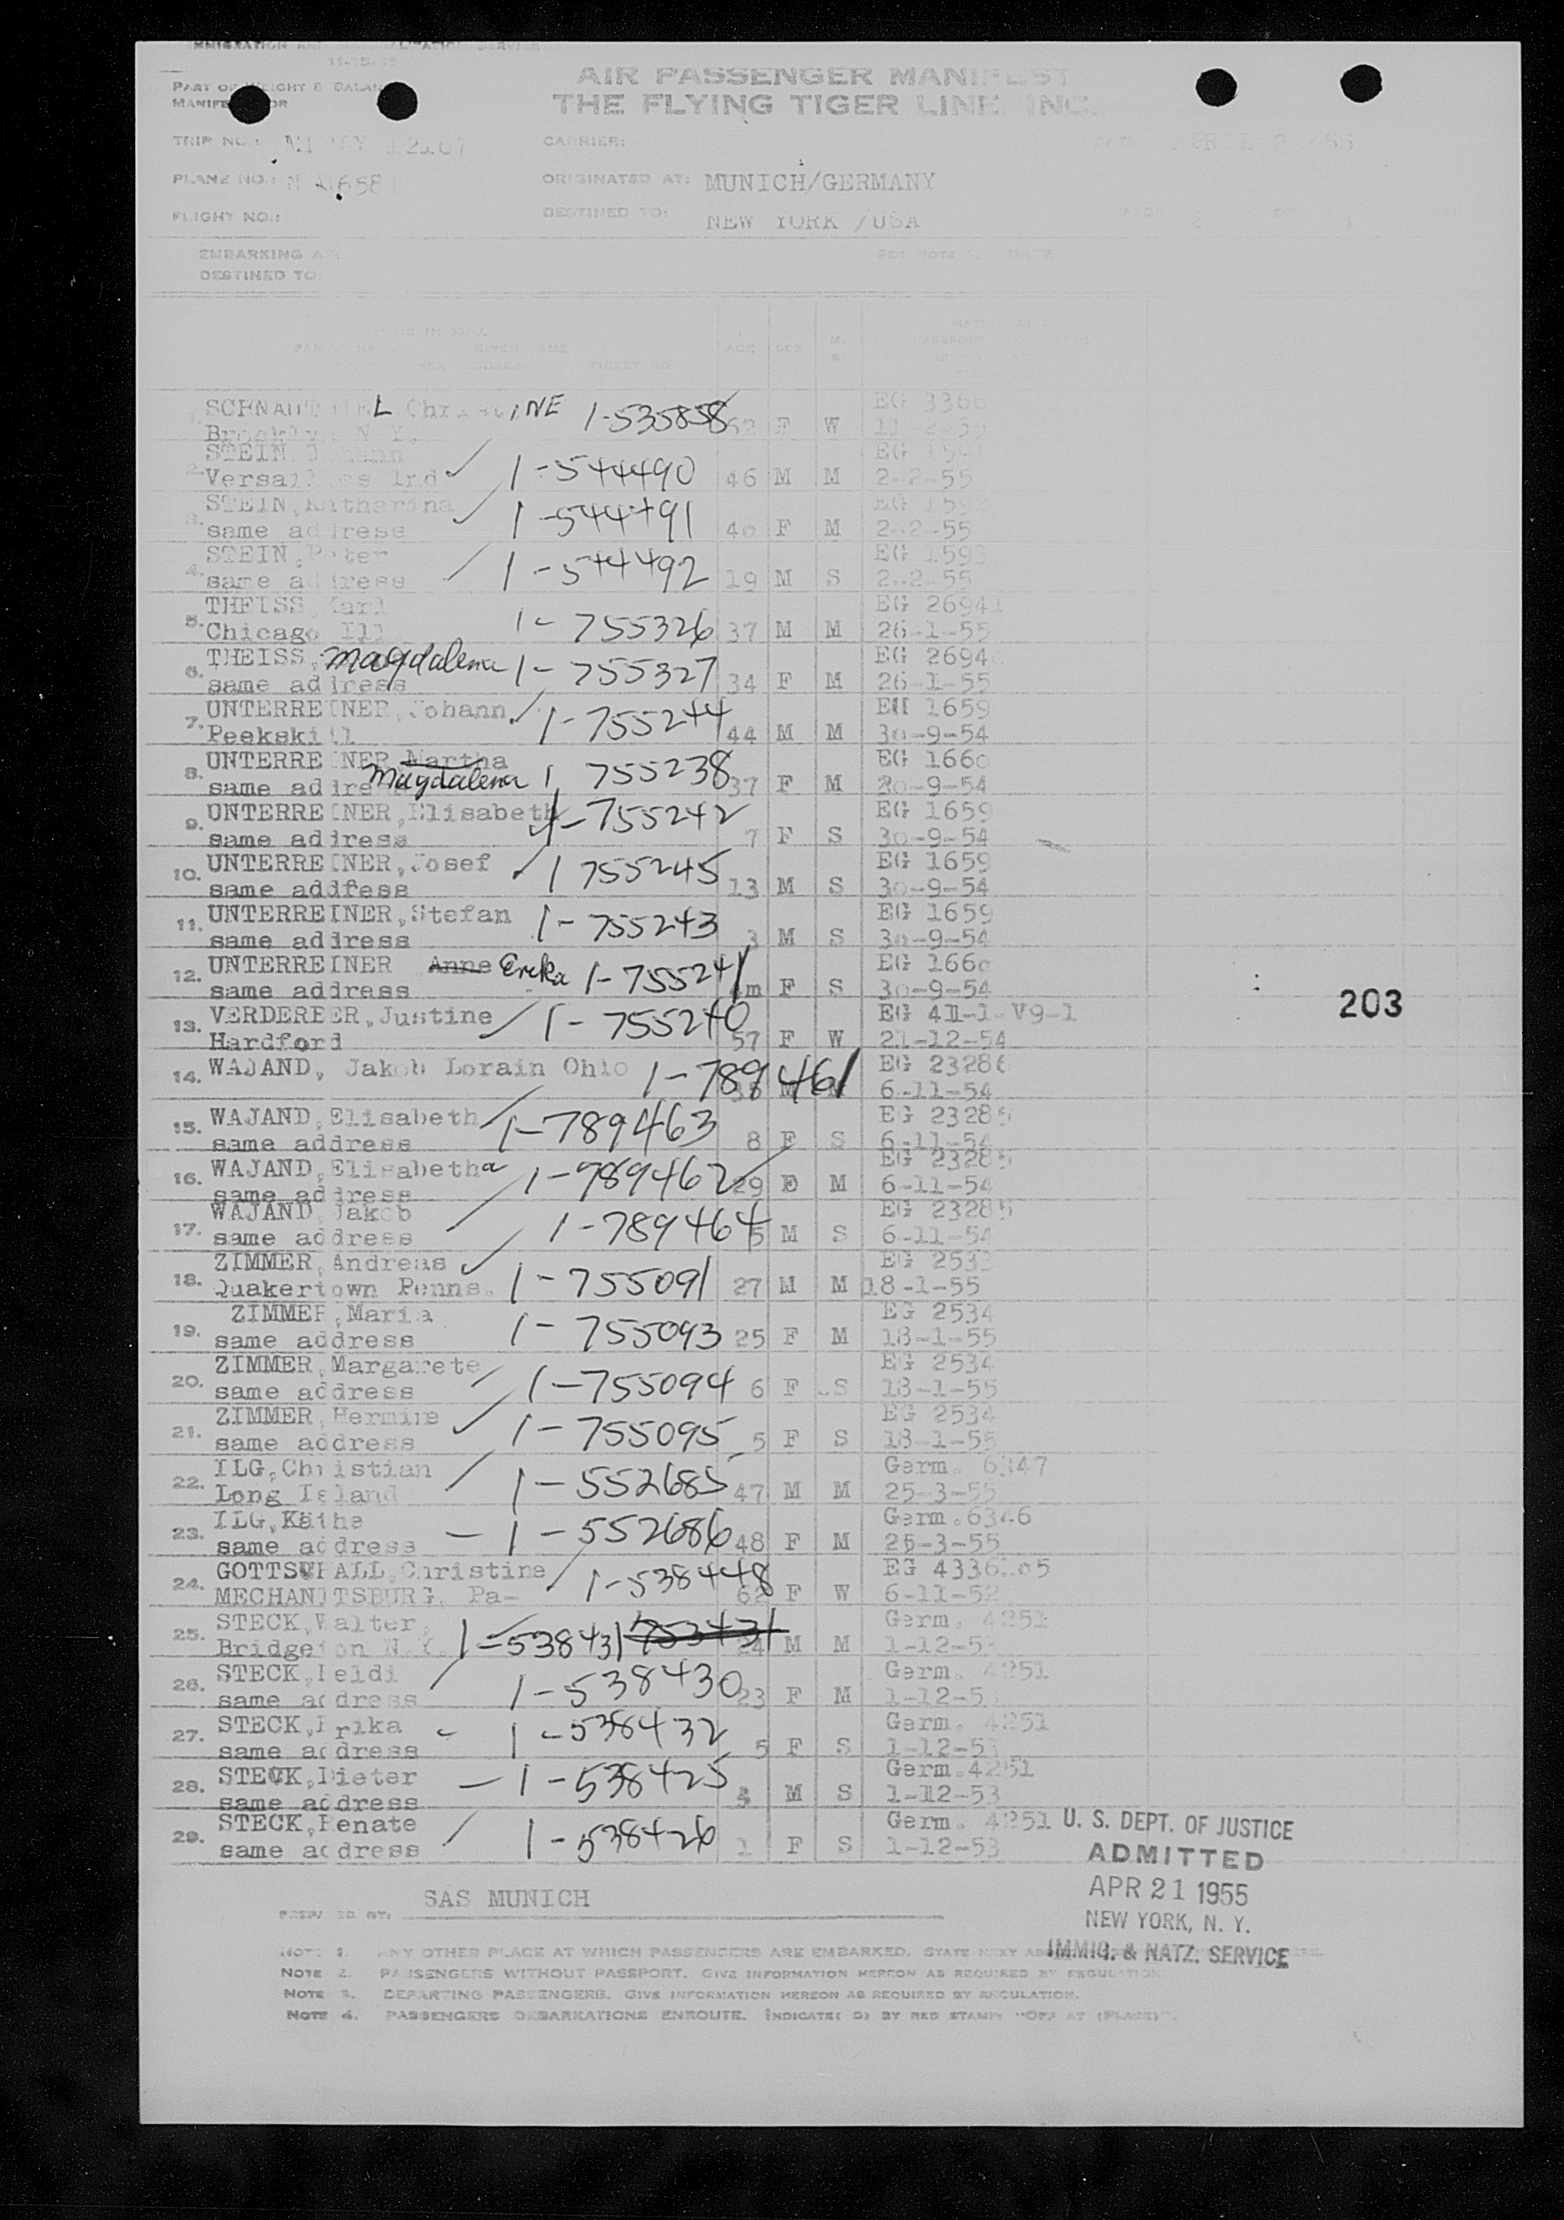 AIR PASSENGER MANIFEST
THE FLYING TIGER LINE INC.
PART OF WEIGHT &
TRIP NO.:
CARRIER:
PLANE NO.:
ORIGINATED AT: MUNICH/GERMANY
FLIGHT NO.:
DESTINED TO: NEW YORK /USA
EMBARKING
DESTINED TO
Christine 1-535858 F W
EG 3366
STEIN
2. 1-544490 46 M M 2-2-55
STEIN, Katharina
3. same address 1-544491 F M 2-2-55
STEIN, Peter EG 1593
4. same address 1-544492 19 M S 2-2-55
THEISS, Karl EG 26941
5. Chicago Ill 1-755326 37 M M 26-1-55
THEISS, Magdalena 1-755327 EG 2694
6. same address 34 F M 26-1-55
UNTERREINER, Johann EH 1659
7. Peekskill 1-755244 44 M M 30-9-54
UNTERREINER Martha EG 1660
8. same address Magdalena 1 755238 37 F M 20-9-54
UNTERREINER, Elisabeth 1-755242 EG 1659
9. same address 7 F S 30-9-54
UNTERREINER, Josef EG 1659
10. same address 1 755245 13 M S 30-9-54
UNTERREINER, Stefan 1-755243 EG 1659
11. same address 3 M S 30-9-54
UNTERREINER Anne Erika 1-755241 EG 1660
12. same address F S 30-9-54
203
VERDERBER, Justine 1-755240 EG 41-1-V9-1
13. Hardford 57 F W 21-12-54
14. WAJAND, Jakob Lorain Ohio 1-789461 EG 23286
6-11-54
WAJAND, Elisabeth EG 23285
15. same address 1-789463 8 F S 6-11-54
WAJAND, Elisabetha EG 23285
16. same address 1-789462 29 M 6-11-54
WAJAND Jakob EG 23285
17. same address 1-789464 5 M S 6-11-54
ZIMMER, Andreas EG 253
18. Quakertown Penns. 1-755091 27 M M 18-1-55
ZIMMER, Maria EG 2534
19. same address 1-755093 25 F M 18-1-55
ZIMMER, Margarete EG 2534
20. same address 1-755094 6 F S 18-1-55
ZIMMER, Hermine EG 2534
21. same address 1-755095 5 F S 18-1-55
ILG, Christian Germ. 6347
22. Long Island 1-552685 47 M M 25-3-55
ILG, Käthe Germ. 6346
23. same address 1-552686 48 F M 25-3-55
GOTTSCHALL, Christine EG 4336
24. MECHANITSBURG, Pa- 1-538448 62 F W 6-11-52
STECK, Walter, Germ. 4251
25. Bridgeton N.Y. 1-538431 753431 24 M M 1-12-53
STECK, Heidi Germ. 4251
26. same address 1-538430 23 F M 1-12-53
STECK, Erika Germ. 4251
27. same address 1-538432 5 F S 1-12-53
STECK, Dieter Germ. 4251
28. same address 1-538425 M S 1-12-53
STECK, Renate Germ. 4251
29. same address 1-538426 1 F S 1-12-53
U. S. DEPT. OF JUSTICE
ADMITTED
APR 21 1955
NEW YORK, N. Y.
IMMIG. & NATZ. SERVICE
PREPARED AT: SAS MUNICH
NOTE 1. ANY OTHER PLACE AT WHICH PASSENGERS ARE EMBARKED. STATE
NOTE 2. PASSENGERS WITHOUT PASSPORT. GIVE INFORMATION HEREON AS REQUIRED BY REGULATION
NOTE 3. DEPARTING PASSENGERS. GIVE INFORMATION HEREON AS REQUIRED BY REGULATION.
NOTE 4. PASSENGERS DEBARKATIONS ENROUTE. INDICATE( D) BY RED STAMP "OFF AT (PLACE)".